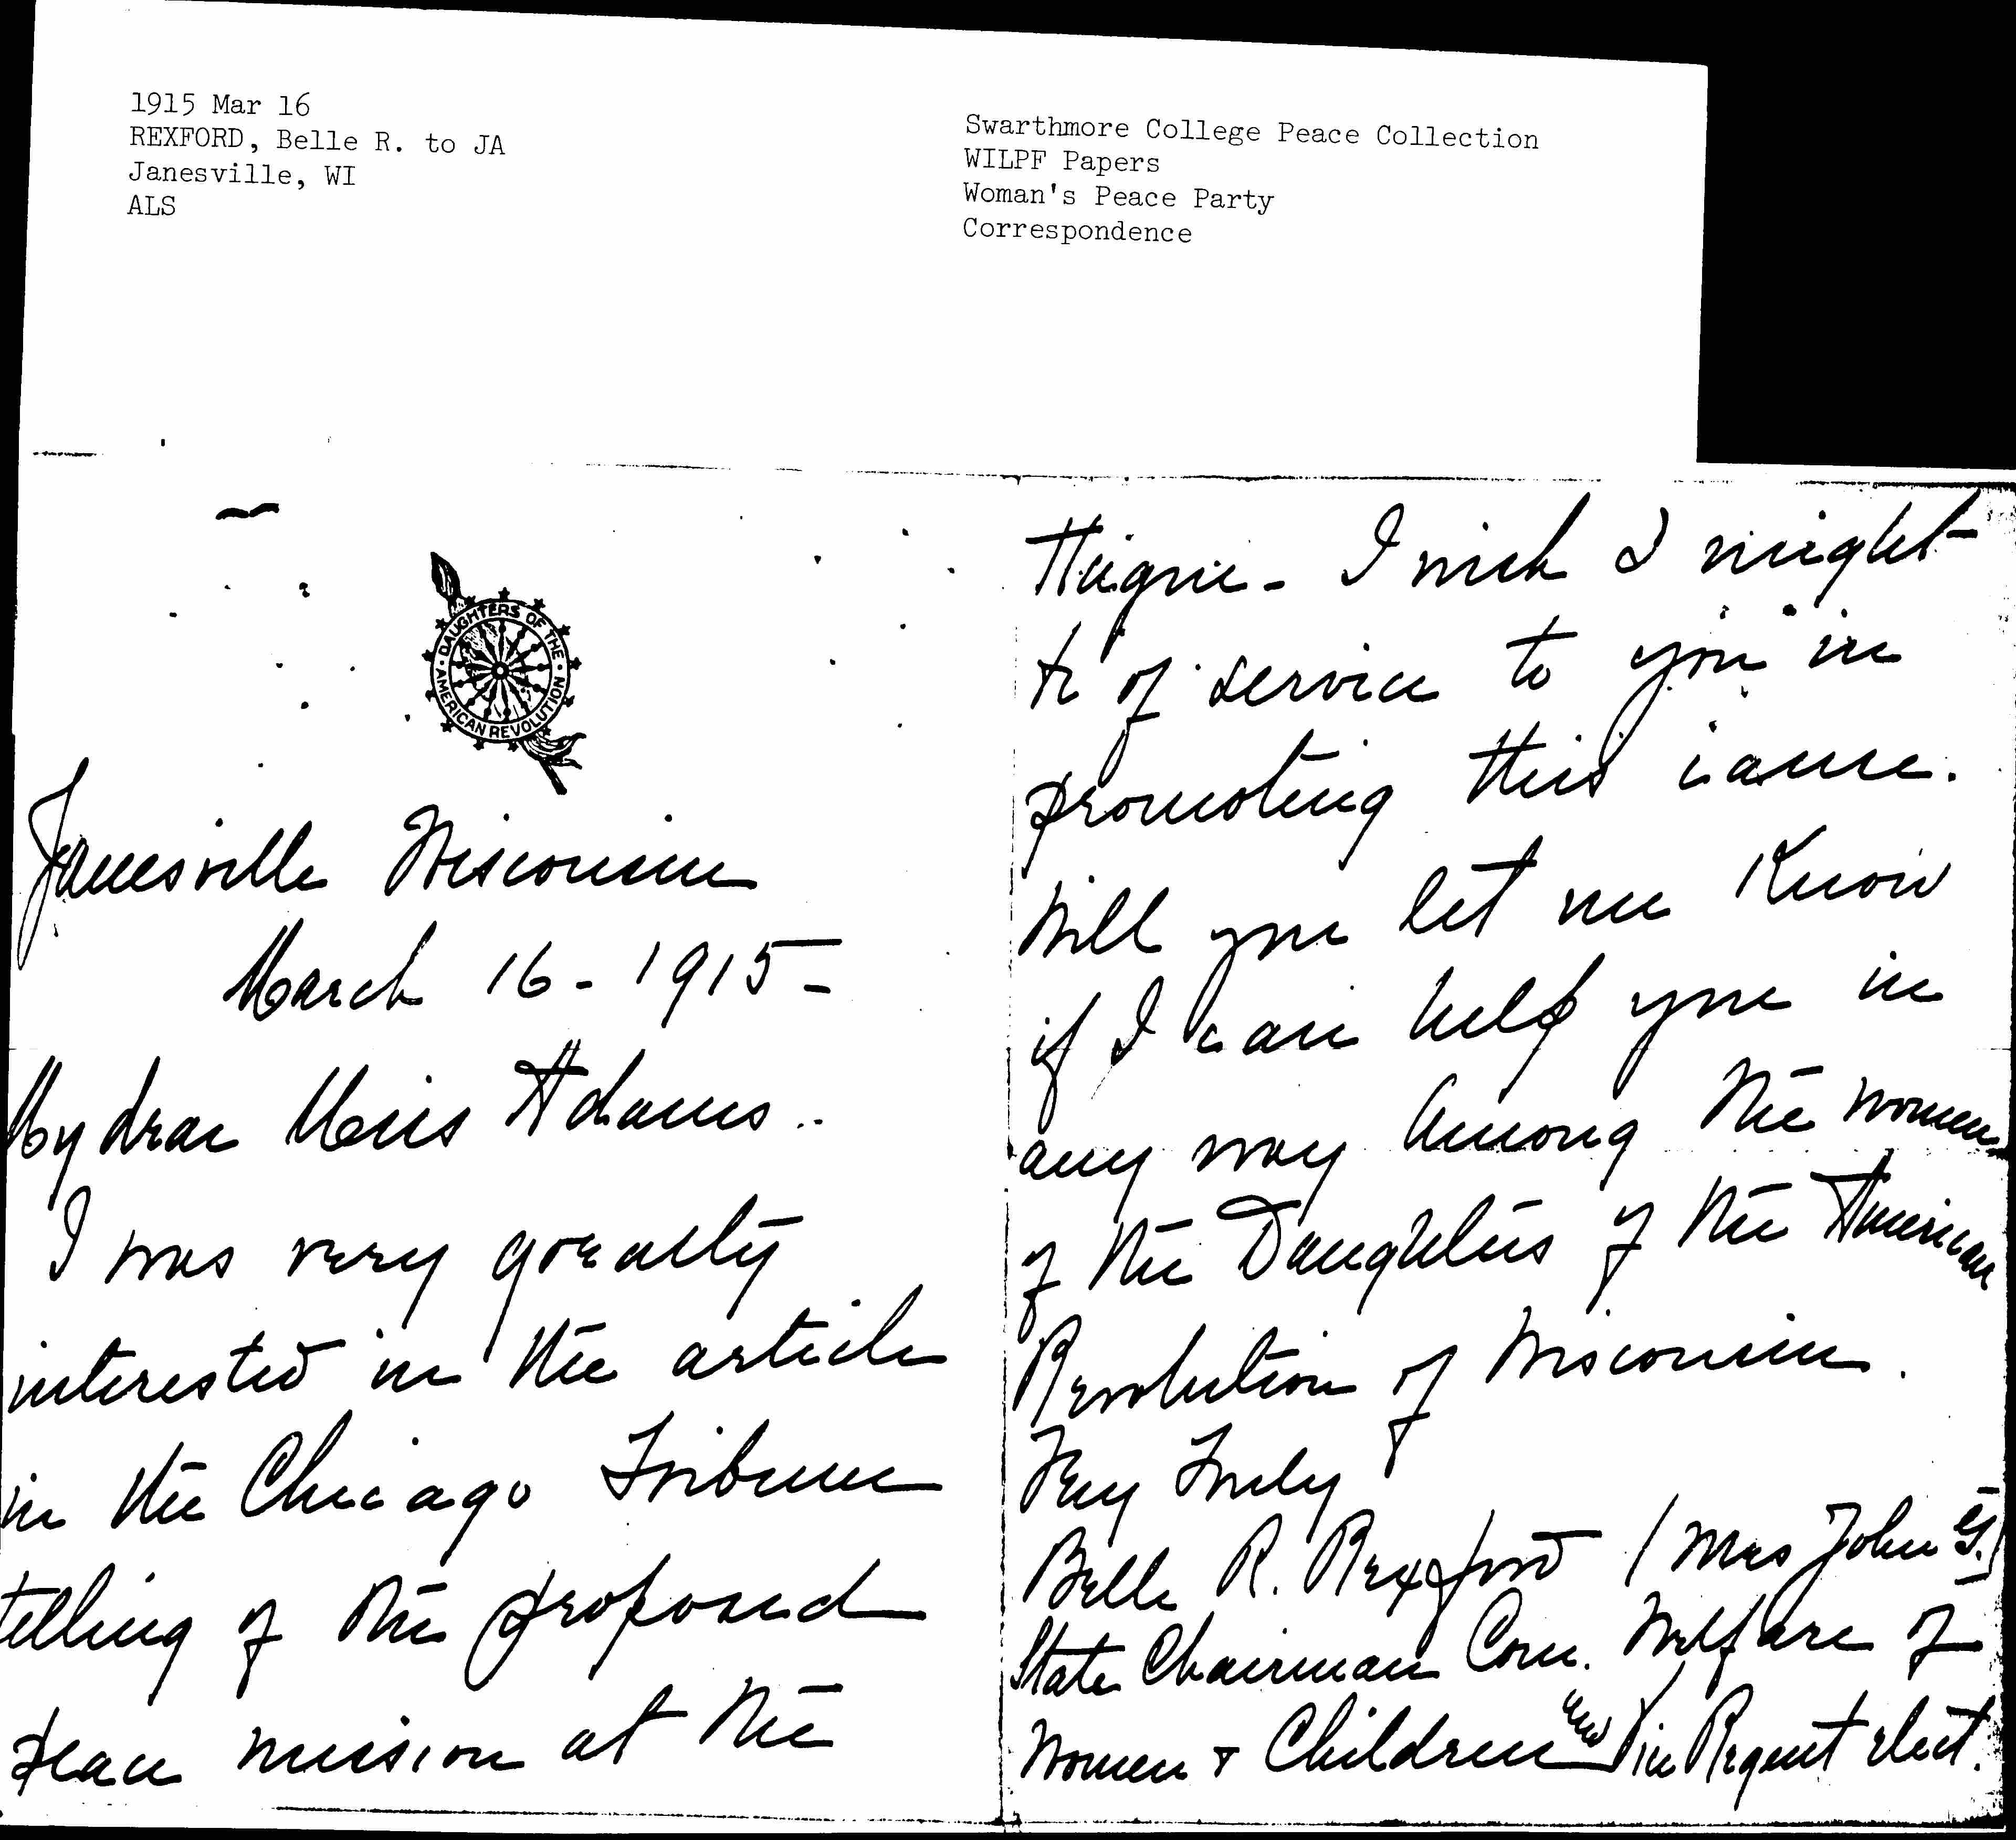 1915 Mar 16
REXFORD, Belle R. to JA
Janesville, WI
ALS
Swarthmore College Peace Collection
WILPF Papers
Woman's Peace Party
Correspondence
DAUGHTERS OF THE AMERICAN REVOLUTION
Janesville Wisconsin
March 16 - 1915 -
My dear Miss Adams..
I was very greatly
interested in the article
in the Chicago Tribune
telling of the proposed
peace mission at the
Hague - I wish I might
be of service to you in
promoting this cause.
Will you let me know
if I can help you in
any way among the women
of the Daughters of the American
Revolution of Wisconsin.
Very Truly
Belle R. Rexford (Mrs John G.)
State Chairman Com. Welfare of
Women + Children and Vice Regent elect.